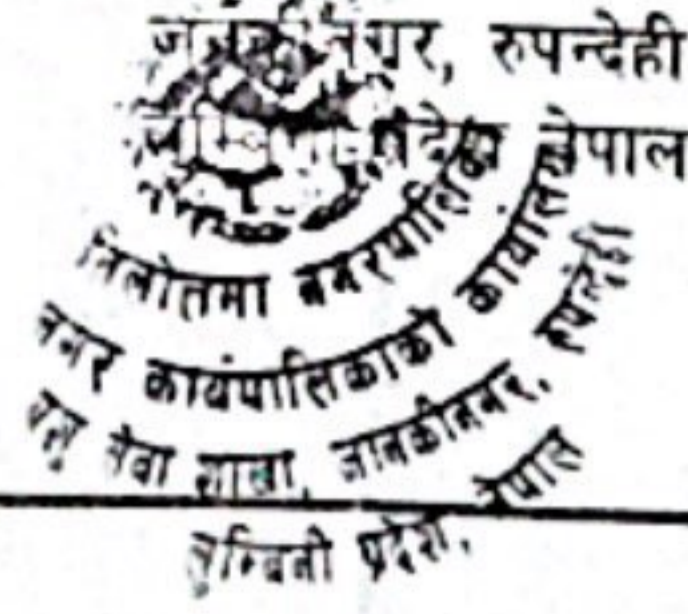 जानकीनगर, रुपन्देही
लुम्बिनी प्रदेश, नेपाल
तिलोत्तमा नगरपालिका
नगर कार्यपालिकाको कार्यालय
पशु सेवा शाखा, जानकीनगर, रुपन्देही
लुम्बिनी प्रदेश, नेपाल